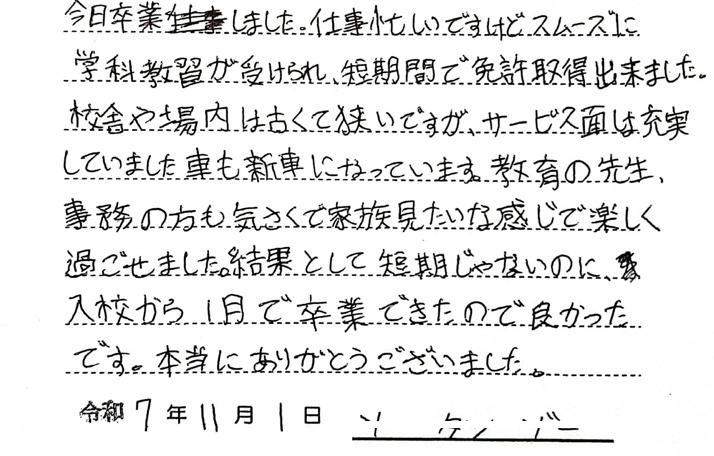 今日卒業しました。仕事忙しいですけどスムーズに
学科教習が受けられ、短期間で免許取得出来ました。
校舎や場内は古くて狭いですが、サービス面は充実
していました車も新車になっています。教育の先生、
事務の方も気さくで家族見たいな感じで楽しく
過ごせました。結果として短期じゃないのに、
入校から1月で卒業できたので良かった
です。本当にありがとうございました。
令和7年11月1日